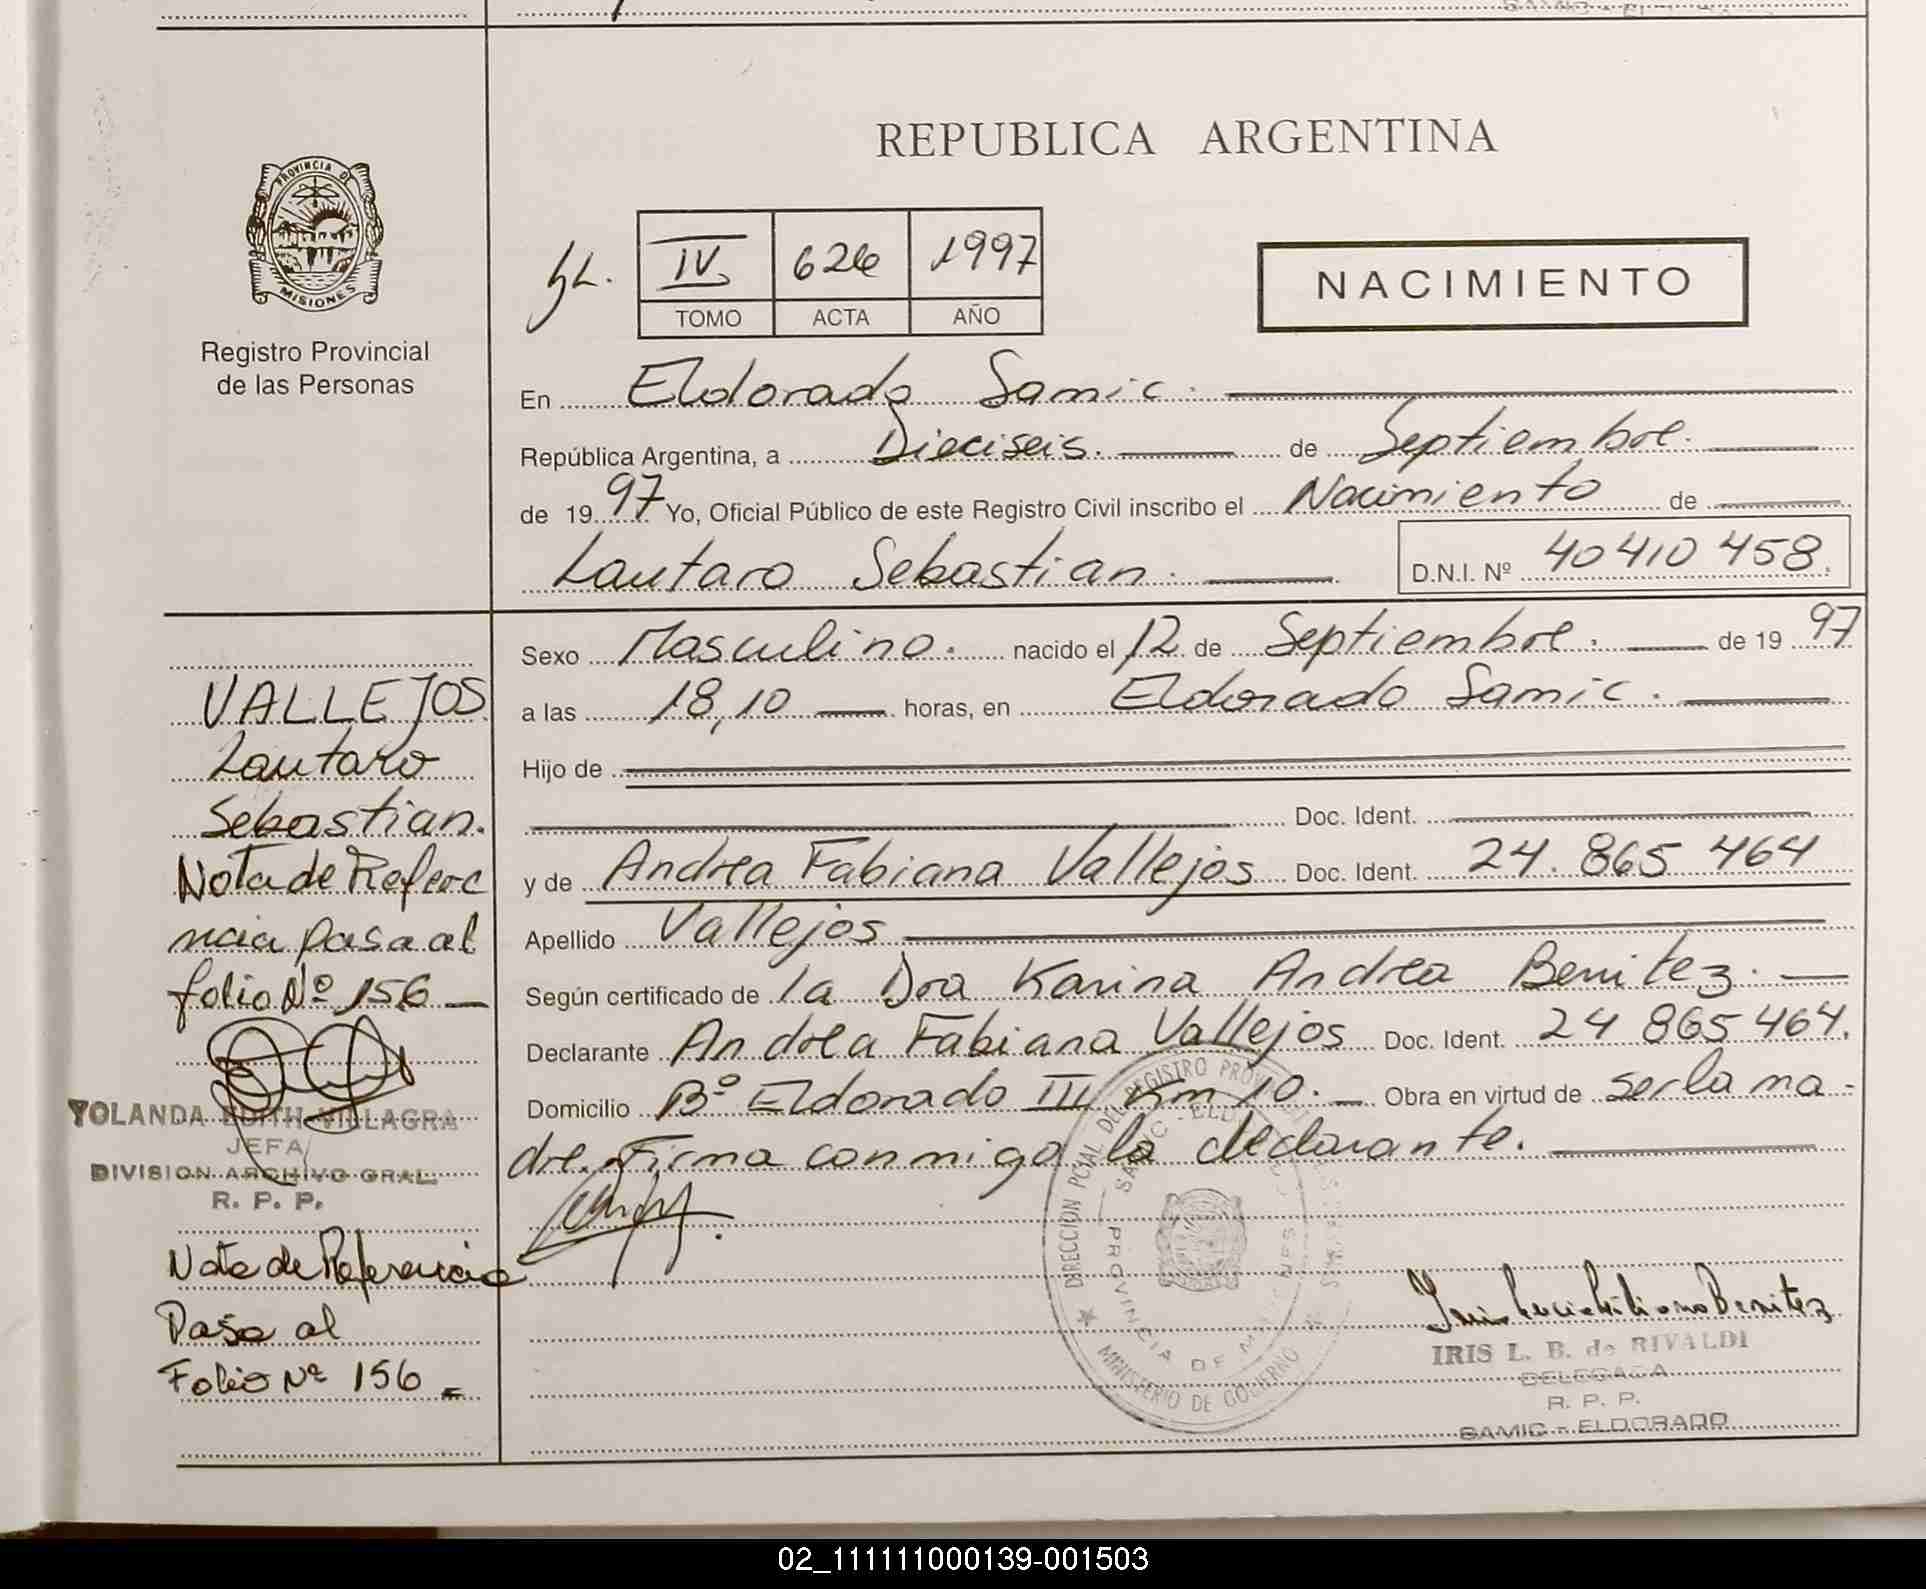 REPUBLICA ARGENTINA
PROVINCIA DE
MISIONES
Registro Provincial
de las Personas
IV 626 1997
TOMO ACTA AÑO
NACIMIENTO
En Eldorado Samic.
República Argentina, a Dieciseis. de Septiembre.
de 1997 Yo, Oficial Público de este Registro Civil inscribo el Nacimiento de
Lautaro Sebastian. D.N.I. Nº 40 410 458.
Sexo Masculino. nacido el 12 de Septiembre. de 1997
a las 18,10 horas, en Eldorado Samic.
Hijo de
Doc. Ident.
y de Andrea Fabiana Vallejos Doc. Ident. 24.865 464
Apellido Vallejos
Según certificado de la Dra Karina Andrea Benitez.
Declarante Andrea Fabiana Vallejos Doc. Ident. 24 865 464.
Domicilio Bº Eldorado III Km 10. Obra en virtud de ser la ma-
dre. Firma conmigo la declarante.
VALLEJOS
Lautaro
Sebastian.
Nota de Referc
ncia pasa al
folio Nº 156
YOLANDA EDITH VILLAGRA
JEFA
DIVISION ARCHIVO GRAL.
R. P. P.
Nota de Referencia
Pasa al
Folio Nº 156
DIRECCION PCIAL DEL REGISTRO PROV
PROVINCIA DE
MINISTERIO DE GOBIERNO
IRIS L. B. de RIVALDI
DELEGADA
R. P. P.
SAMIC - ELDORADO
02_111111000139-001503